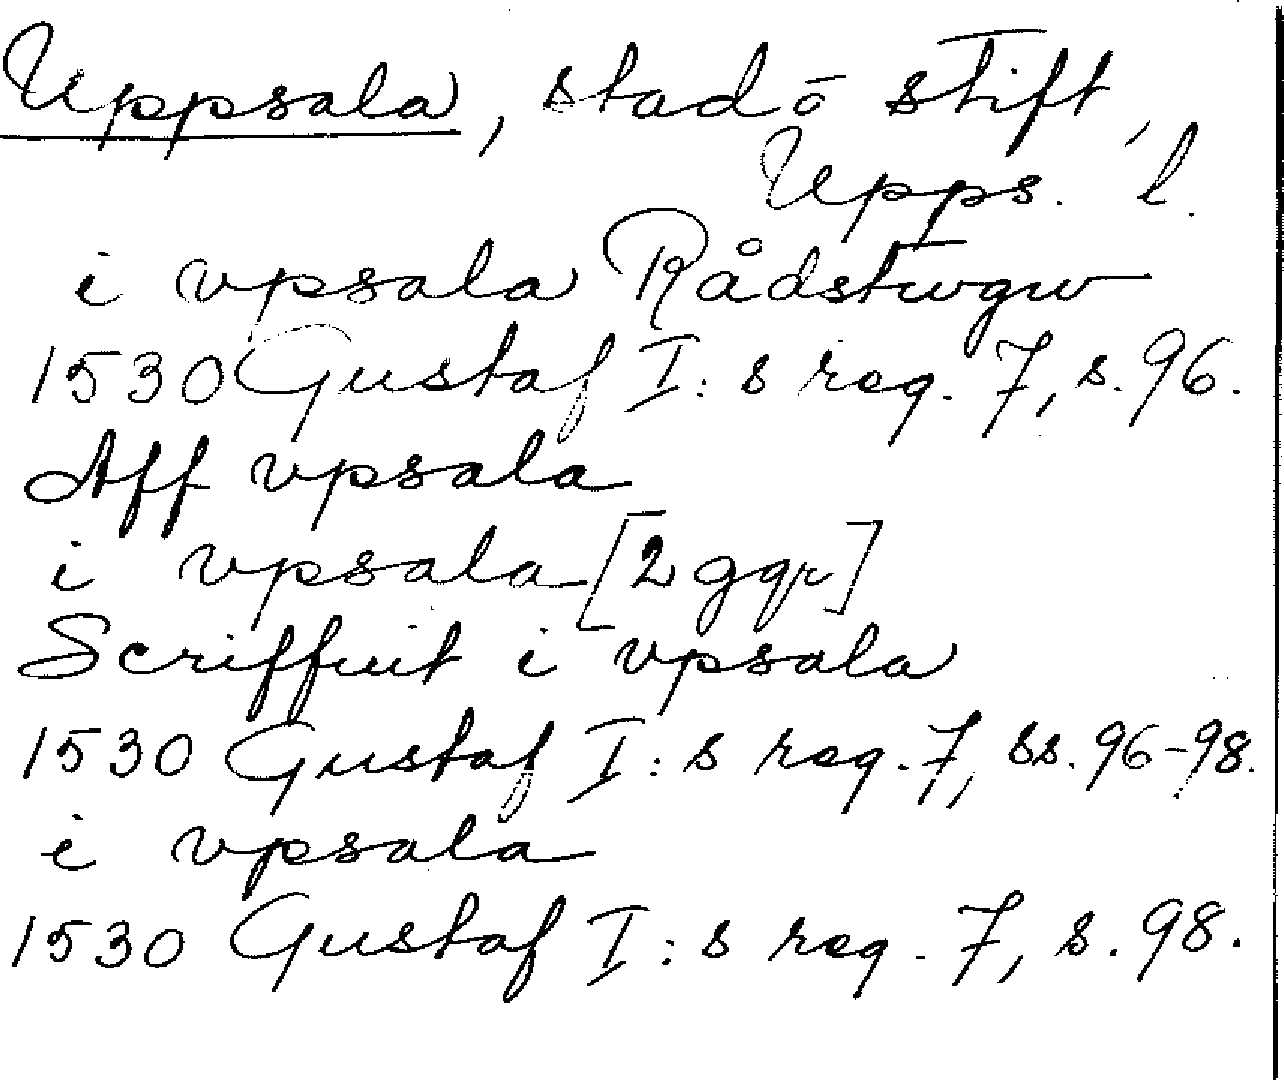 Uppsala, stad o stift,
Upps. l.
i vpsala Rådstwgw
1530 Gustaf I:s reg. 7, s. 96.
Aff vpsala
i vpsala [2 ggr]
Scriffuit i vpsala
1530 Gustaf I:s reg. 7, ss. 96-98.
i vpsala
1530 Gustaf I:s reg. 7, s. 98.